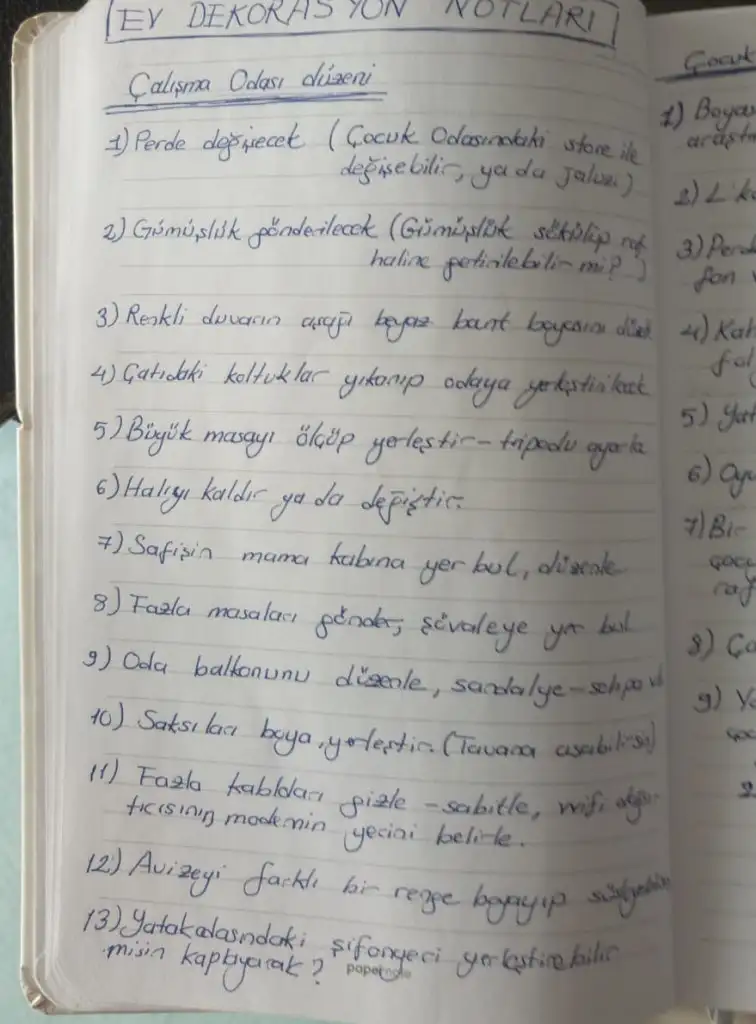 EV DEKORASYON NOTLARI
Çalışma Odası düzeni
1) Perde değişecek (Çocuk Odasındaki store ile
değişebilir, ya da jaluzi)
2) Gümüşlük gönderilecek (Gümüşlük sökülüp raf
haline getirilebilir mi?)
3) Renkli duvarın aşağı beyaz bant boyasını
4) Çatıdaki koltuklar yıkanıp odaya yerleştirilecek
5) Büyük masayı ölçüp yerleştir - tripodu ayarla
6) Halıyı kaldır ya da değiştir.
7) Safişin mama kabına yer bul, düzenle
8) Fazla masaları gönder, şövaleye yer bul
9) Oda balkonunu düzenle, sandalye - sehpa
10) Saksıları boya, yerleştir. (Tavana asabilirsin)
11) Fazla kabloları gizle - sabitle, wifi
tıcısının modemin yerini belirle.
12) Avizeyi farklı bir renge boyayıp
13) Yatakodasındaki şifonyeri yerleştirebilir
misin kaplayarak?
Çocuk
1) Boya
araştı
2)
3) Perd
fon
4)
5) Yat
6)
7) Bir
raf
8)
9)